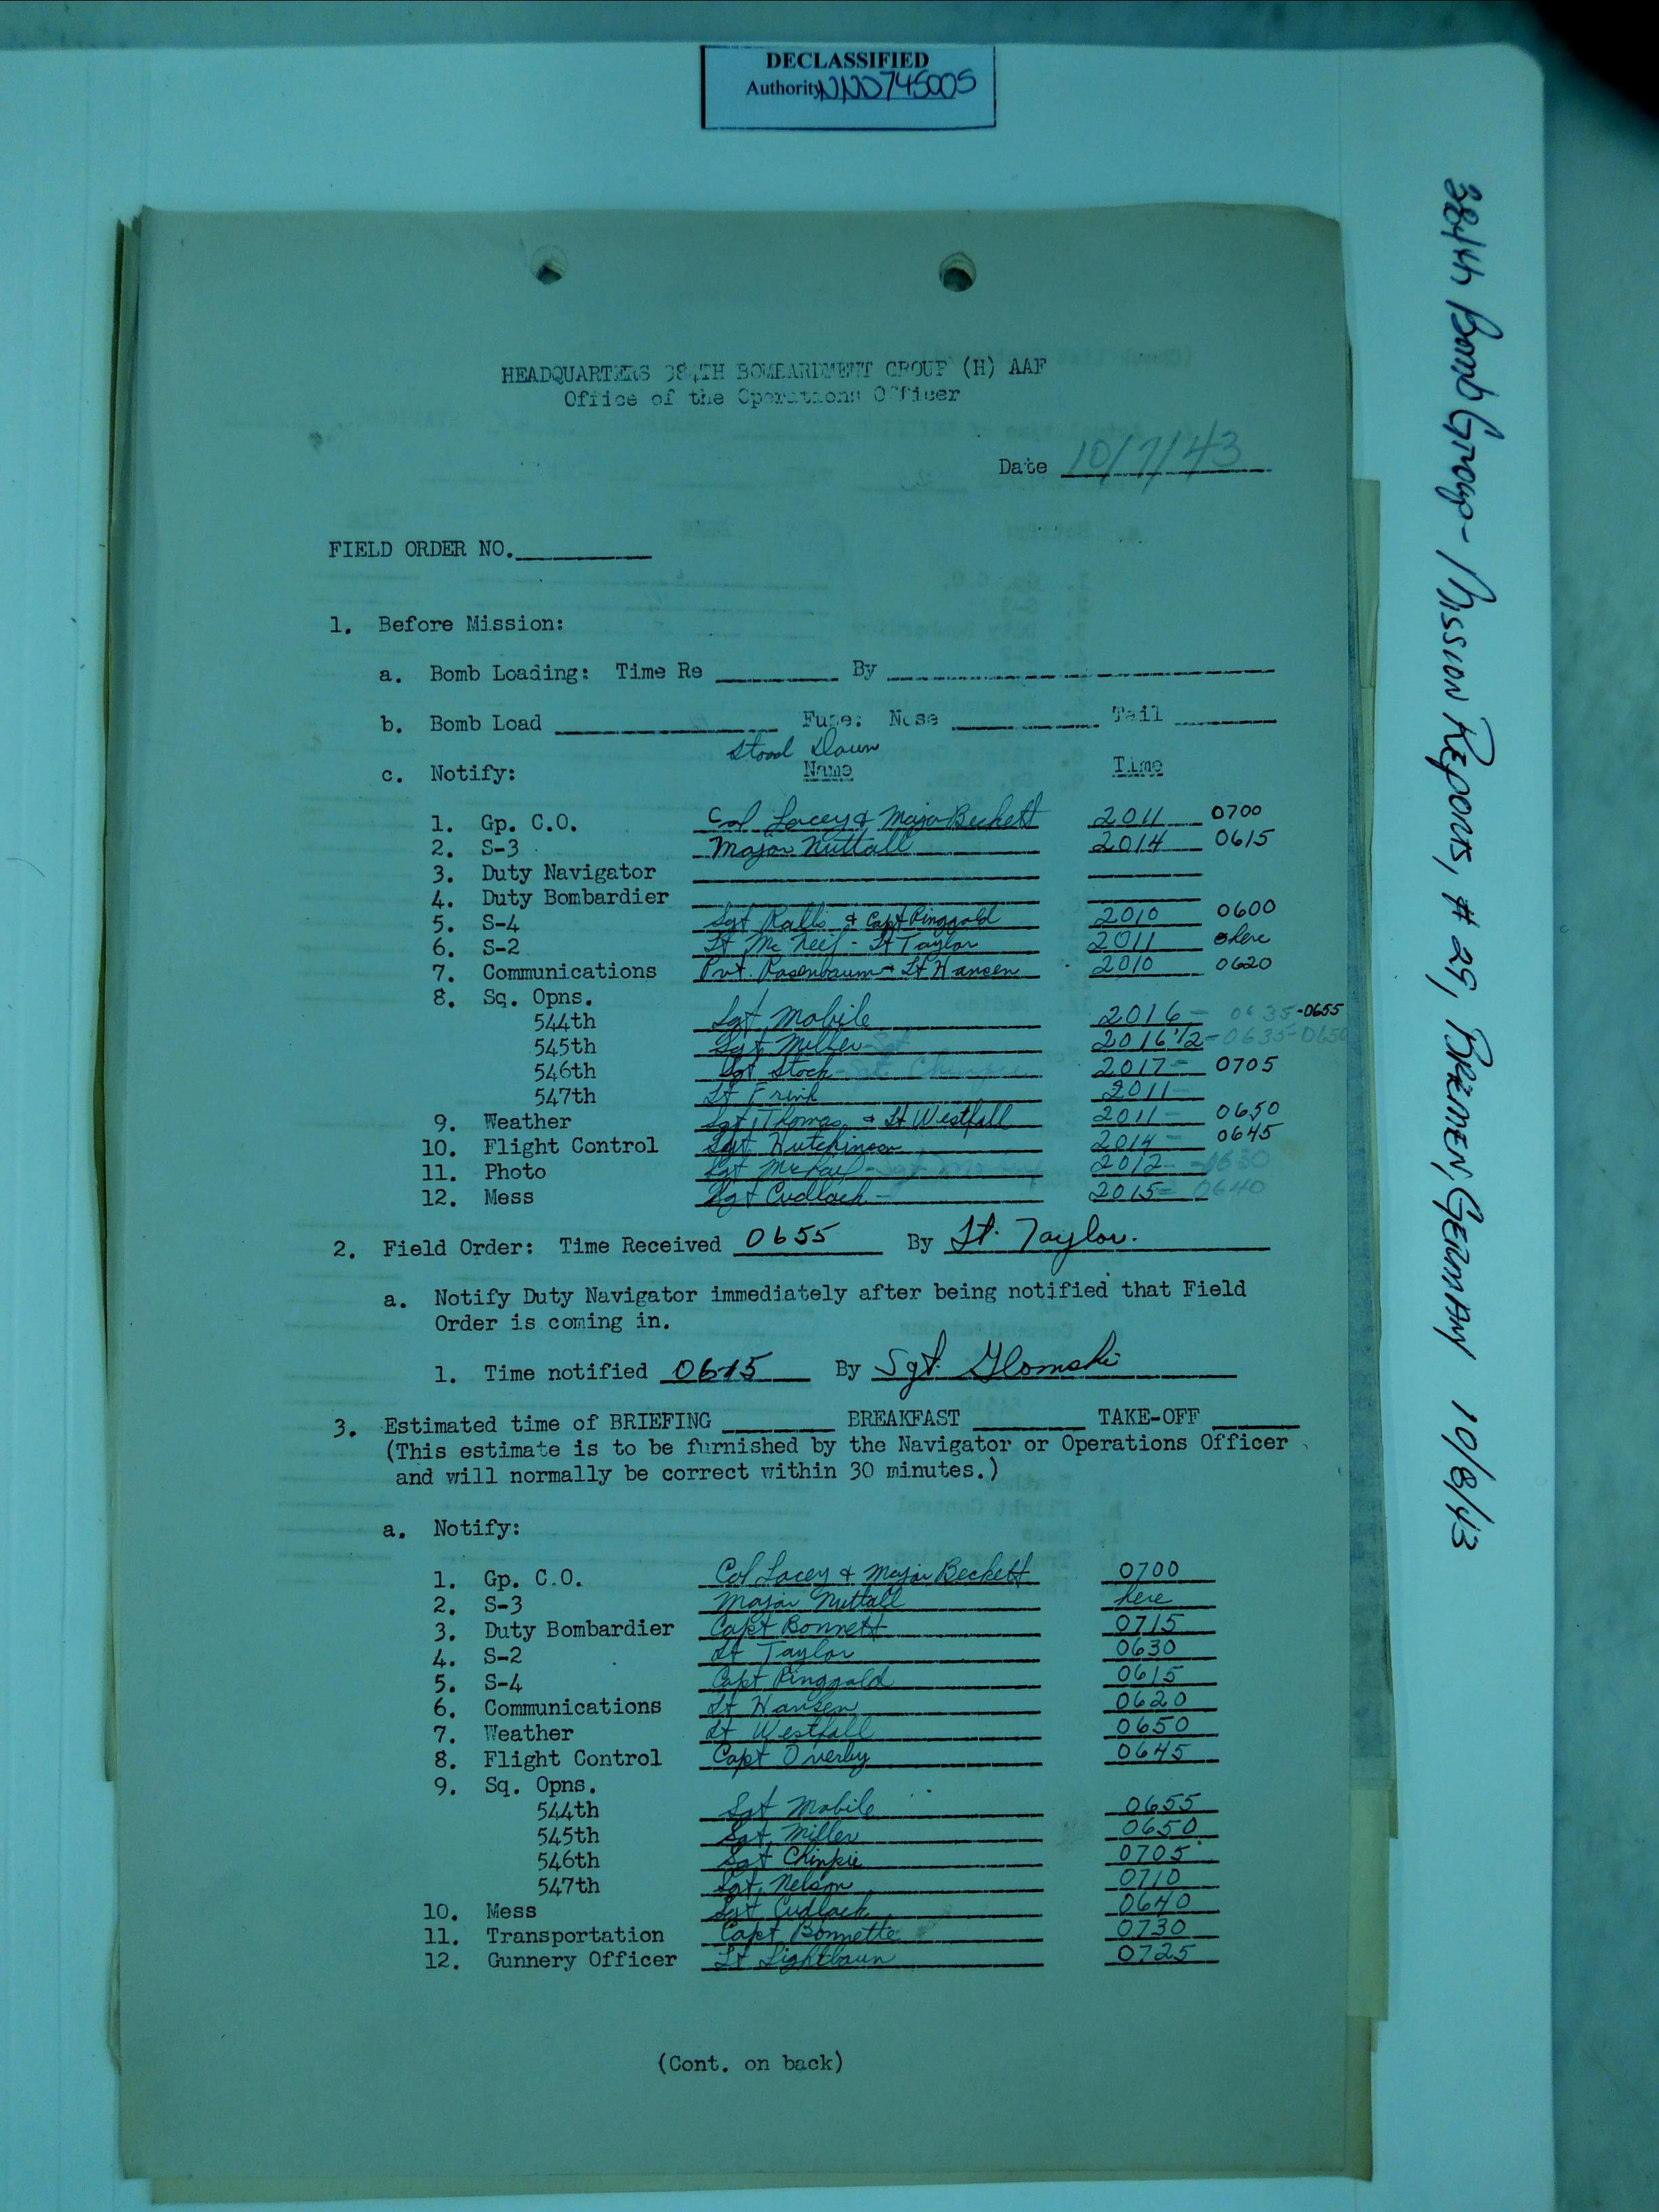 DECLASSIFIED
Authority NND745005
384th Bomb Group - Mission Reports, # 29, Bremen, Germany 10/8/43
HEADQUARTERS 384TH BOMBARDMENT GROUP (H) AAF
Office of the Operations Officer
Date 10/7/43
FIELD ORDER NO.
1. Before Mission:
a. Bomb Loading: Time Re By
b. Bomb Load Fuze: Nose Tail
Stood Down
c. Notify: Name Time
1. Gp. C.O. Col Lacey & Major Beckett 2011 0700
2. S-3 Major Nuttall 2014 0615
3. Duty Navigator
4. Duty Bombardier
5. S-4 Sgt Rallis & Capt Ringgold 2010 0600
6. S-2 Lt Taylor 2011 here
7. Communications Pvt. Rosenbaum & Lt Hansen 2010 0620
8. Sq. Opns.
544th Sgt Mobile 2016 - 0635-0655
545th Sgt Miller - Sgt 2016 1/2 - 0635-0650
546th Sgt Stock - Sgt. Chinkie 2017 - 0705
547th Lt Frink 2011 -
9. Weather Sgt Thomas & Lt Westfall 2011 - 0650
10. Flight Control Sgt Hutchinson 2014 - 0645
11. Photo Sgt 2012 - 0630
12. Mess Sgt Cudlack - 2015 - 0640
2. Field Order: Time Received 0655 By Lt. Taylor.
a. Notify Duty Navigator immediately after being notified that Field
Order is coming in.
1. Time notified 0615 By Sgt. Glomski
3. Estimated time of BRIEFING BREAKFAST TAKE-OFF
(This estimate is to be furnished by the Navigator or Operations Officer
and will normally be correct within 30 minutes.)
a. Notify:
1. Gp. C.O. Col Lacey & Major Beckett 0700
2. S-3 Major Nuttall here
3. Duty Bombardier Capt Bonnett 0715
4. S-2 Lt Taylor 0630
5. S-4 Capt Ringgold 0615
6. Communications Lt Hansen 0620
7. Weather Lt Westfall 0650
8. Flight Control Capt Overby 0645
9. Sq. Opns.
544th Sgt Mobile 0655
545th Sgt Miller 0650
546th Sgt Chinkie 0705
547th Sgt Nelson 0710
10. Mess Sgt Cudlack 0640
11. Transportation Capt Bonnette 0730
12. Gunnery Officer Lt Lightbaun 0725
(Cont. on back)